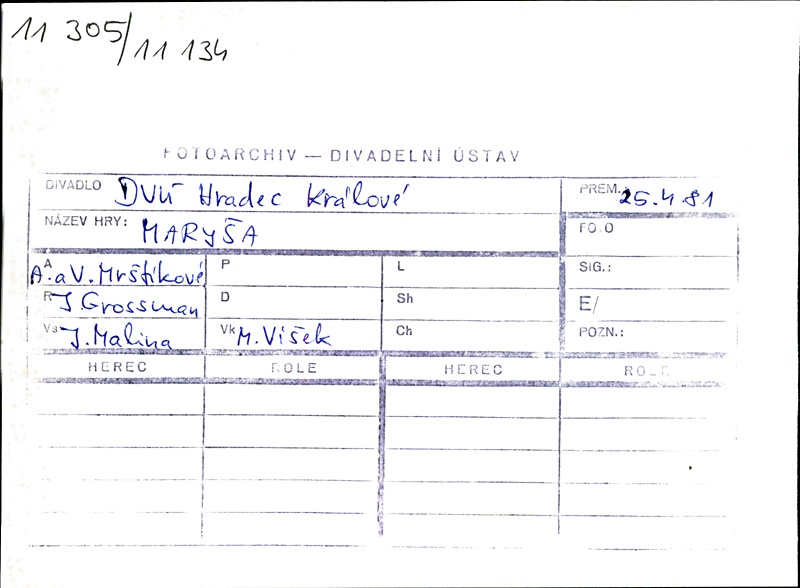 11 305/11 134
FOTOARCHIV — DIVADELNÍ ÚSTAV
DIVADLO DVÚ Hradec Králové PREM. 25.4 81
NÁZEV HRY: MARYŠA FOTO
A A. a V. Mrštíkové P L SIG.:
R J. Grossman D Sh E/
Vs J. Malina Vk M. Višek Ch POZN.:
HEREC ROLE HEREC ROLE